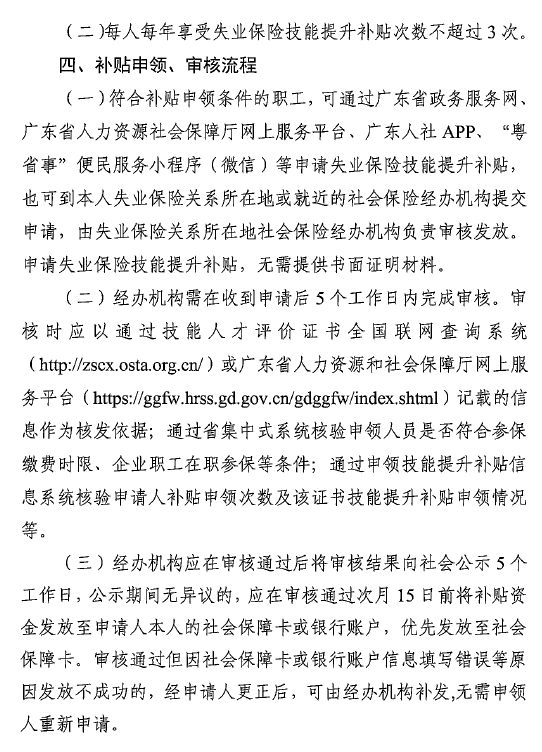 （二）每人每年享受失业保险技能提升补贴次数不超过 3 次。
四、补贴申领、审核流程
（一）符合补贴申领条件的职工，可通过广东省政务服务网、
广东省人力资源社会保障厅网上服务平台、广东人社 APP、“粤
省事”便民服务小程序（微信）等申请失业保险技能提升补贴，
也可到本人失业保险关系所在地或就近的社会保险经办机构提交
申请，由失业保险关系所在地社会保险经办机构负责审核发放。
申请失业保险技能提升补贴，无需提供书面证明材料。
（二）经办机构需在收到申请后 5 个工作日内完成审核。审
核时应以通过技能人才评价证书全国联网查询系统
（http://zscx.osta.org.cn/）或广东省人力资源和社会保障厅网上服
务平台（https://ggfw.hrss.gd.gov.cn/gdggfw/index.shtml）记载的信
息作为核发依据；通过省集中式系统核验申领人员是否符合参保
缴费时限、企业职工在职参保等条件；通过申领技能提升补贴信
息系统核验申请人补贴申领次数及该证书技能提升补贴申领情况
等。
（三）经办机构应在审核通过后将审核结果向社会公示 5 个
工作日，公示期间无异议的，应在审核通过次月 15 日前将补贴资
金发放至申请人本人的社会保障卡或银行账户，优先发放至社会
保障卡。审核通过但因社会保障卡或银行账户信息填写错误等原
因发放不成功的，经申请人更正后，可由经办机构补发,无需申领
人重新申请。